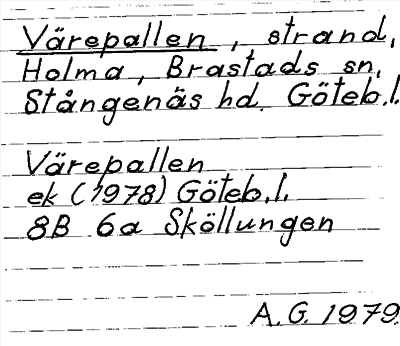 Värepallen, strand,
Holma, Brastads sn,
Stångenäs hd. Göteb.l.
Värepallen
ek (1978) Göteb.l.
8B 6a Sköllungen
A.G. 1979.